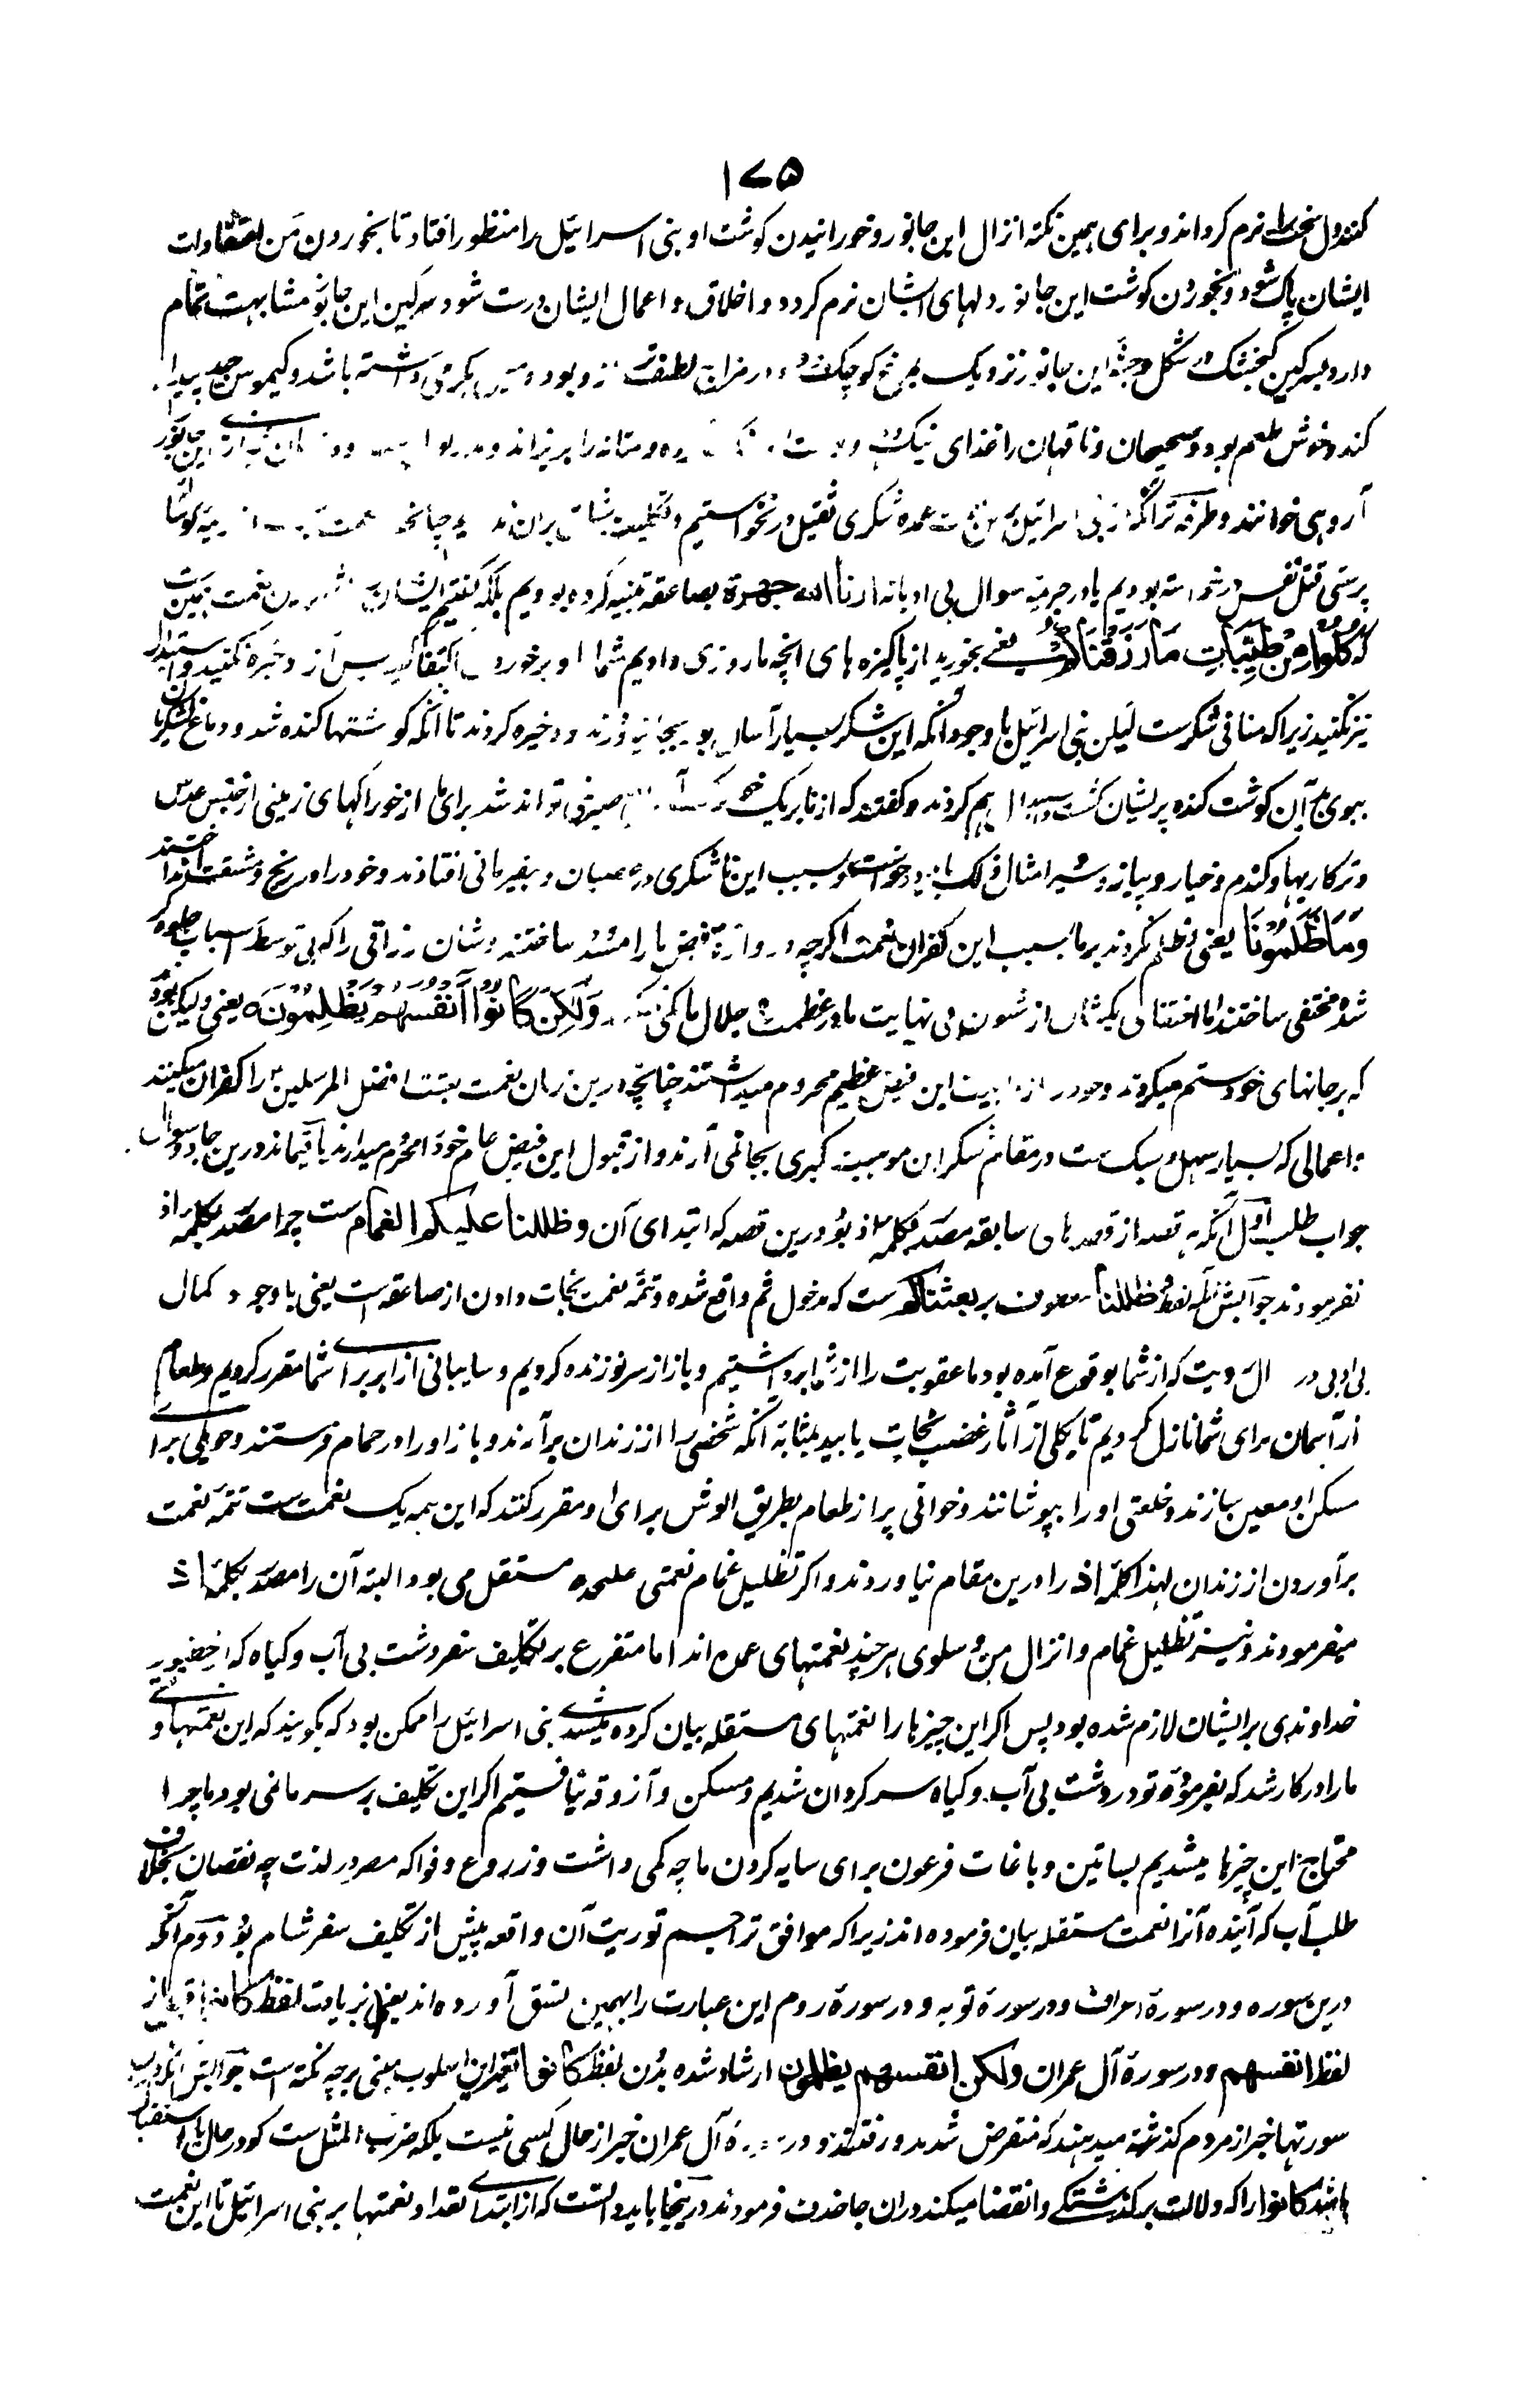 ١٧٥
کند و دل سخت را نرم گرداند و برای همین نکته انزال این جانور و خورانیدن گوشت او بنی اسرائیل را منظور افتاد تا بخوردن من
ایشان پاک شود و بخوردن گوشت این جانور دلهای ایشان نرم گردد و اخلاق و اعمال ایشان درست شود و سرگین این جانور مشابهت تمام
دارد بسرگین گنجشک و در شکل و جثه این جانور نزدیک بمرغ کوچک و در مزاج لطیف‌تر ازو بود باشد و کیموس جید پیدا
کند و خوش طعم بود و صحیحان و ناقهان را غذای نیک و مثانه را بریزاند و این جانور
خوانند و طرفه‌تر آنکه از بنی اسرائیل عمده شکری ثقیل در نخواستیم و تکلیف شاق بران گوساله
پرستی قتل نفس درخواسته بودیم یا در جریمه سوال بی ادبانه ارنا الله جهرة بصاعقه تنبیه کرده بودیم بلکه گفتیم ایشان را نعمت
که کُلُوا مِنْ طَيِّبَاتِ مَا رَزَقْنَاكُمْ یعنی بخورید از پاکیزه های انچه ما روزی دادیم شما را و بر خوردن اکتفا کنید پس از ذخیره مکنید
نیز مکنید زیرا که منافی شکرست لیکن بنی اسرائیل با وجود آنکه این شکر بسیار آسان بود بجا نیاوردند و ذخیره کردند تا آنکه گوشتها گنده شد و دماغ
ببوی آن گوشت گنده پریشان گشت هم کردند و گفتند که از ما بر یک تواند شد برای ما از خوراکهای زمینی از جنس عدس
و ترکاریها و گندم و خیار و پیاز و سیر امثال ذلک باید درخواست و بسبب این ناشکری در عصیان و بیفرمانی افتادند و خود را در رنج و مشقت انداختند
وَمَا ظَلَمُونَا یعنی و ظلم نکردند بر ما بسبب این کفران نعمت اگرچه دروازه فیض ما را مسدود ساختند و شان رزاقی را که بی توسط اسباب جلوه گر
شده مختفی ساختند اما اختفای یک شان از شئون بی نهایت ما در عظمت و جلال ما کمی نمیکند وَلَكِنْ كَانُوا أَنْفُسَهُمْ يَظْلِمُونَ یعنی و لیکن بودند
که بر جانهای خود ستم میکردند و خود را از این فیض عظیم محروم میداشتند چنانچه درین زمان نعمت بعثت افضل المرسلین را کفران میکنند
اعمالی که بسیار سهل و سبک ست در مقام شکر این موهبت کبری بجا نمی آرند و از قبول این فیض عام خود را محروم میدارند باقیماند درین جا دو سوال
جواب طلب اول آنکه هر قصه از قصه های سابقه مصدر بکلمه اذ بود درین قصه که ابتدای آن وظللنا علیکم الغمام ست چرا مصدر بکلمه اذ
نفرمودند جوابش آنکه لفظ ظللنا معطوف بر بعثناکم ست که مدخول ثم واقع شده و تتمه نعمت نجات دادن از صاعقه است یعنی با وجود کمال
بی ادبی در سوال رویت که از شما بوقوع آمده بود ما عقوبت را از شما برداشتیم و باز از سر نو زنده کردیم و سایبانی از ابر برای شما مقرر کردیم و طعام
از آسمان برای شما نازل کردیم تا بکلی از آثار غضب نجات یابید بمثابه آنکه شخصی را از زندان برآرند و باز او را در حمام فرستند و حویلی برای
سکن او معین سازند و خلعتی او را بپوشانند و خوانی پر از طعام بطریق الوش برای او مقرر کنند که این همه یک نعمت ست تتمه نعمت
برآوردن از زندان لهذا کلمه اذ را درین مقام نیاوردند و اگر تظلیل غمام نعمتی علیحده مستقل می بود البته آن را مصدر بکلمه اذ
میفرمودند و نیز تظلیل غمام و انزال من و سلوی هرچند نعمتهای عمده اند اما متفرع بر تکلیف سفر دشت بی آب و گیاه که از حضور
خداوندی بر ایشان لازم شده بود پس اگر این چیزها را نعمتهای مستقله بیان کرده میشدے بنی اسرائیل را ممکن بود که بگویند که این نعمتها
ما را در کار شد که بفرموده تو در دشت بی آب و گیاه سرگردان شدیم و مسکن و آزوقه نیافتیم اگر این تکلیف بر سر ما نمی بود ما چرا
محتاج این چیزها میشدیم بساتین و باغات فرعون برای سایه کردن ما چه کمی داشت و زروع و فواکه مصر در لذت چه نقصان بخلاف
طلب آب که آینده آنرا نعمت مستقله بیان فرموده اند زیرا که موافق تراجم توریت آن واقعه پیش از تکلیف سفر شام بود دوم آنکه
درین سوره و در سورة اعراف و در سورة توبه و در سورة روم این عبارت را بهمین نسق آورده اند یعنی بزیادت لفظ کانوا قبل از
لفظ انفسهم و در سورة آل عمران ولکن انفسهم یظلمون ارشاد شده بدون لفظ کانوا تغییر این اسلوب مبنی بر چه نکته است جوابش آنکه درین
سورتها خبر از مردم گذشته میدهند که منقرض شدند و رفتند و در سورة آل عمران خبر از حال کسی نیست بلکه ضرب المثل ست گو در حال یا استقبال
باشد کانوا را که دلالت بر گذشتگی و انقضا میکند دران جا حذف فرمودند درینجا باید دانست که از ابتدای تعداد نعمتها بر بنی اسرائیل تا این نعمت